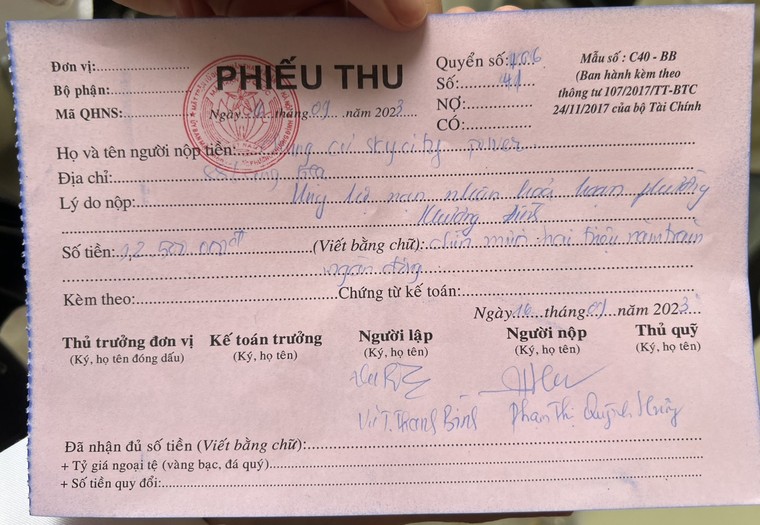 Đơn vị:
PHIẾU THU
Quyển số: 406
Mẫu số : C40 - BB
Bộ phận:
Số: 41
(Ban hành kèm theo
Mã QHNS:
Ngày tháng 09 năm 2023
NỢ:
thông tư 107/2017/TT-BTC
CÓ:
24/11/2017 của bộ Tài Chính
Họ và tên người nộp tiền: cư skycity tower
Địa chỉ:
Lý do nộp: Ủng hộ nạn nhân hoả hoạn phường
Khương Đình
Số tiền: 92 500 000đ (Viết bằng chữ): chín mươi hai triệu năm trăm
ngàn đồng
Kèm theo: Chứng từ kế toán:
Ngày 16 tháng 09 năm 2023
Thủ trưởng đơn vị Kế toán trưởng Người lập Người nộp Thủ quỹ
(Ký, họ tên đóng dấu) (Ký, họ tên) (Ký, họ tên) (Ký, họ tên) (Ký, họ tên)
Thanh Bình Phạm Thị Quỳnh
Đã nhận đủ số tiền (Viết bằng chữ):
+ Tỷ giá ngoại tệ (vàng bạc, đá quý)
+ Số tiền quy đổi: